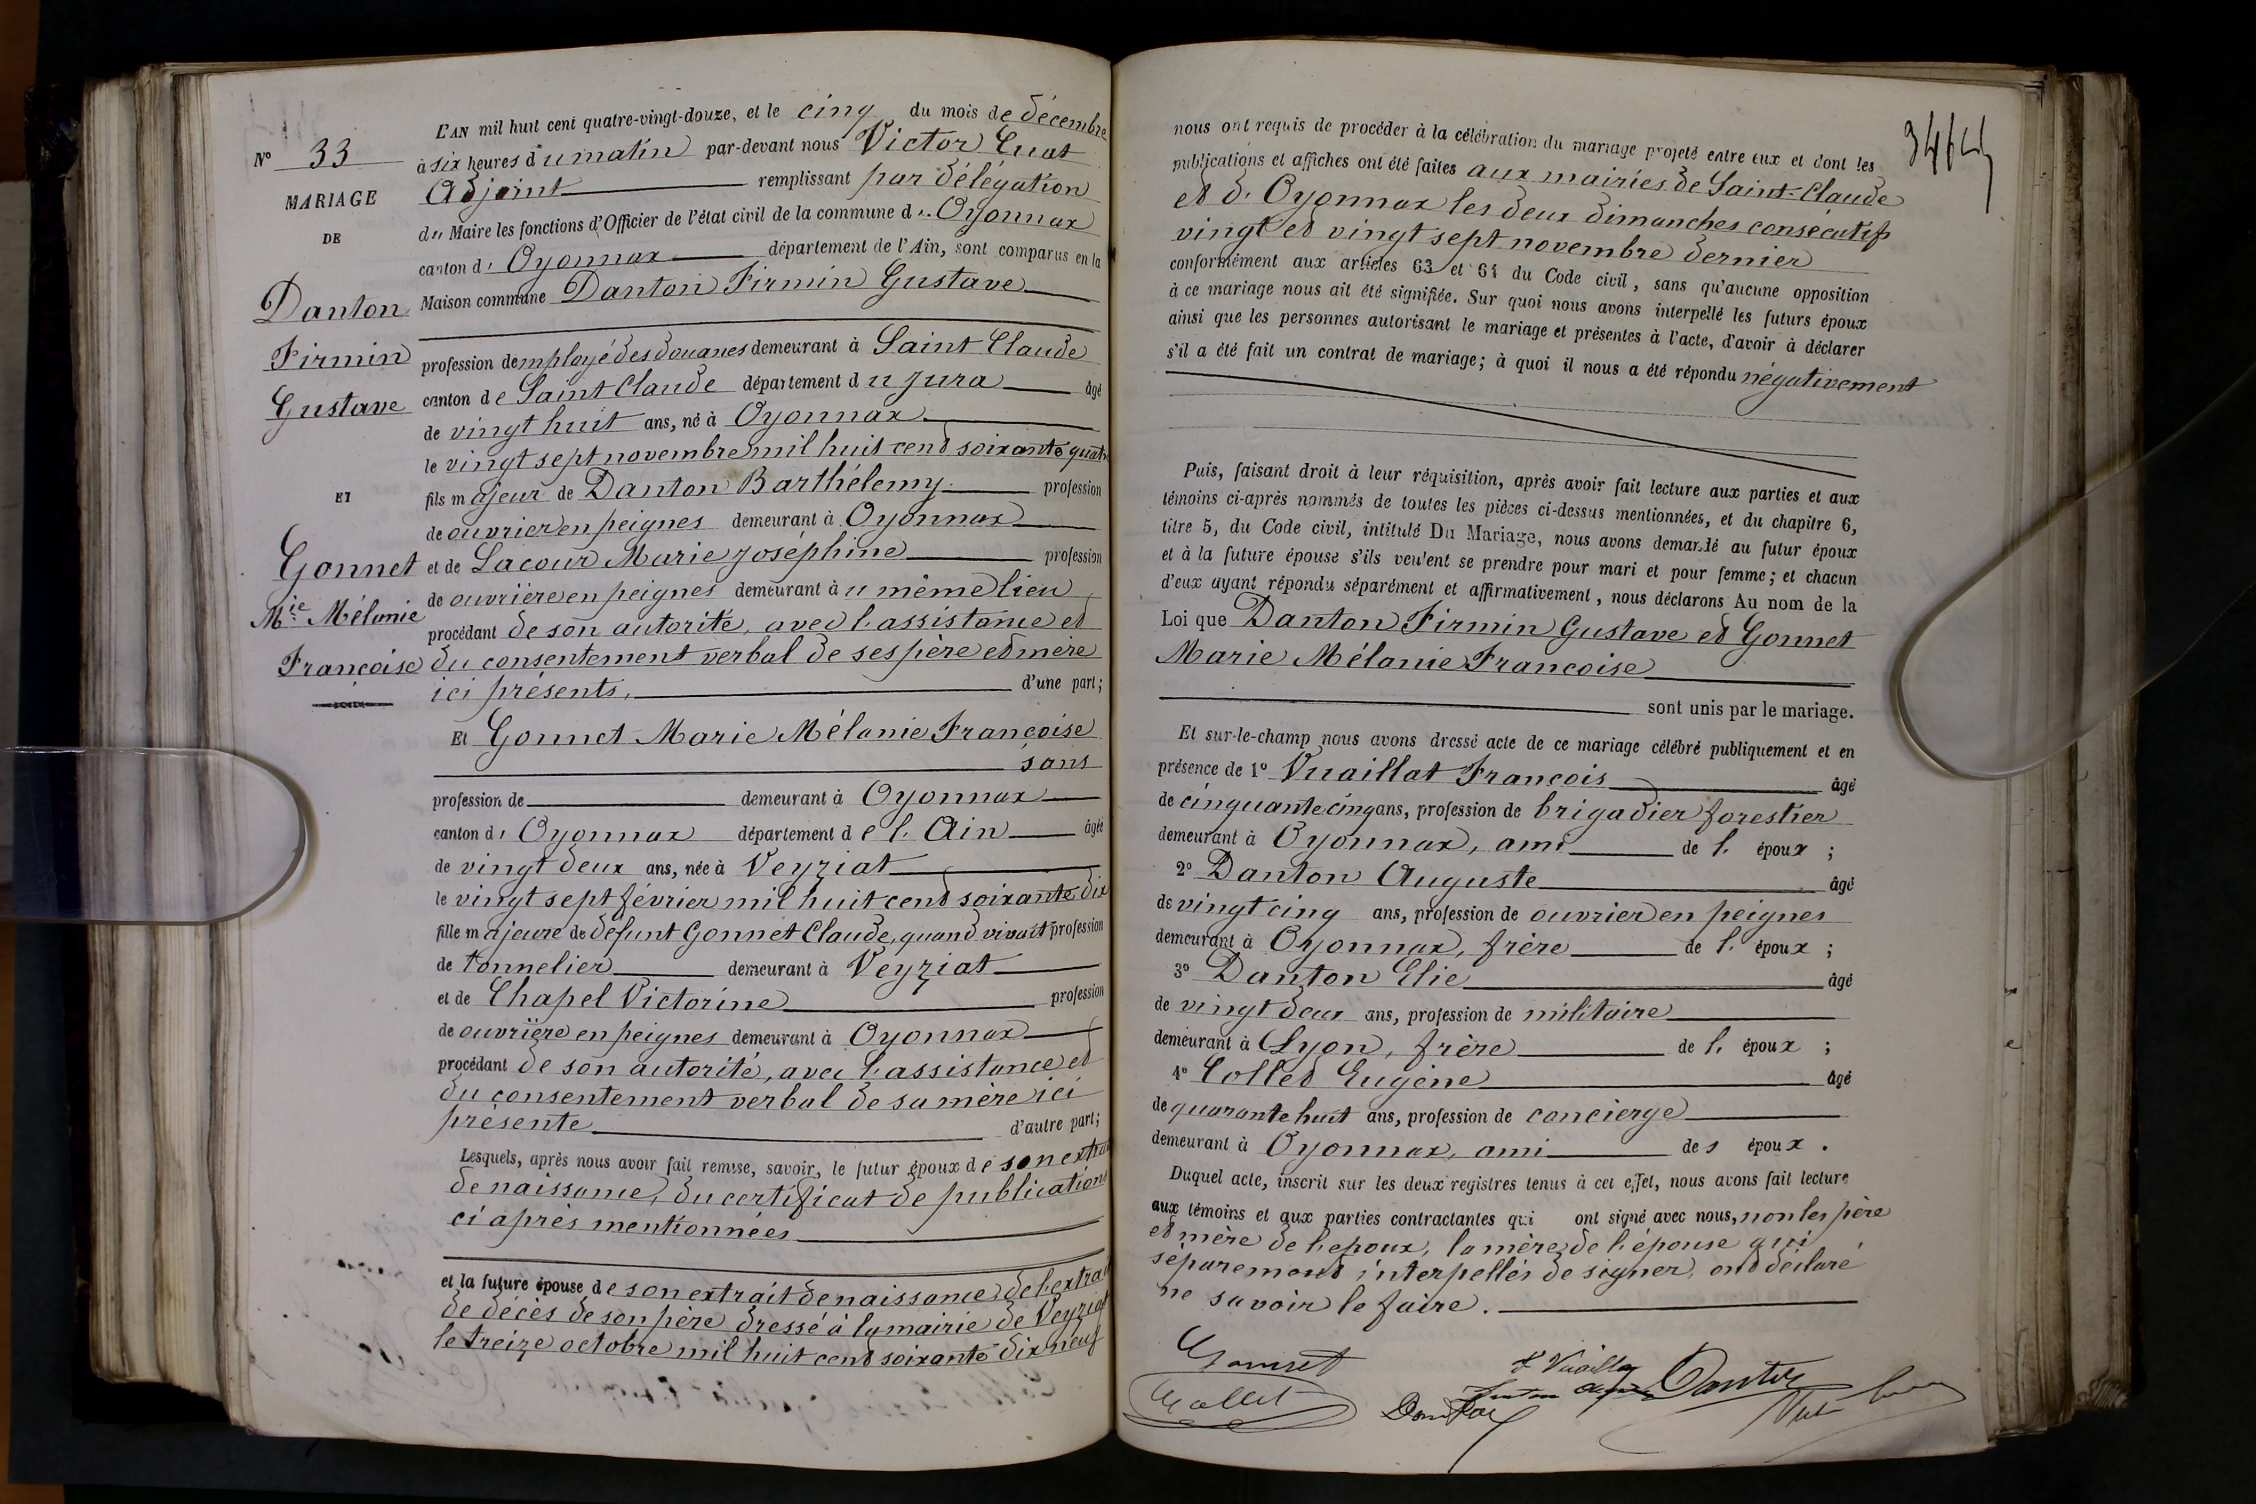 N° 33
MARIAGE
DE
Danton
Firmin
Gustave
ET
Gonnet
Mie Mélanie
Françoise
L'AN mil huit cent quatre-vingt-douze, et le cinq du mois de décembre
à six heures du matin par-devant nous Victor Cuat
Adjoint remplissant par délégation
du Maire les fonctions d'Officier de l'état civil de la commune d'Oyonnax
canton d'Oyonnax département de l'Ain, sont comparus en la
Maison commune Danton Firmin Gustave
profession demployé des douanes demeurant à Saint Claude
canton de Saint Claude département du Jura âgé
de vingt huit ans, né à Oyonnax
le vingt sept novembre mil huit cent soixante quatre
fils majeur de Danton Barthélemy profession
de ouvrier en peignes demeurant à Oyonnax
et de Lacour Marie Joséphine profession
de ouvrière en peignes demeurant au même lieu
procédant de son autorité, avec l'assistance et
du consentement verbal de ses père et mère
ici présents, d'une part;
Et Gonnet Marie Mélanie Françoise
sans
profession de demeurant à Oyonnax
canton d'Oyonnax département de l'Ain âgée
de vingt deux ans, née à Veyziat
le vingt sept février mil huit cent soixante dix
fille majeure de défunt Gonnet Claude, quand vivait profession
de tonnelier demeurant à Veyziat
et de Chapel Victorine profession
de ouvrière en peignes demeurant à Oyonnax
procédant de son autorité, avec l'assistance et
du consentement verbal de sa mère ici
présente d'autre part;
Lesquels, après nous avoir fait remise, savoir, le futur époux de son extrait
de naissance, du certificat de publications
ci après mentionnées
et la future épouse de son extrait de naissance de l'extrait
de décès de son père dressé à la mairie de Veyziat
le treize octobre mil huit cent soixante dix neuf
nous ont requis de procéder à la célébration du mariage projeté entre eux et dont les
publications et affiches ont été faites aux mairies de Saint-Claude
et d'Oyonnax les deux dimanches consécutifs
vingt et vingt sept novembre dernier
conformément aux articles 63 et 64 du Code civil, sans qu'aucune opposition
à ce mariage nous ait été signifiée. Sur quoi nous avons interpellé les futurs époux
ainsi que les personnes autorisant le mariage et présentes à l'acte, d'avoir à déclarer
s'il a été fait un contrat de mariage; à quoi il nous a été répondu négativement
Puis, faisant droit à leur réquisition, après avoir fait lecture aux parties et aux
témoins ci-après nommés de toutes les pièces ci-dessus mentionnées, et du chapitre 6,
titre 5, du Code civil, intitulé Du Mariage, nous avons demandé au futur époux
et à la future épouse s'ils veulent se prendre pour mari et pour femme; et chacun
d'eux ayant répondu séparément et affirmativement, nous déclarons Au nom de la
Loi que Danton Firmin Gustave et Gonnet
Marie Mélanie Françoise
sont unis par le mariage.
Et sur-le-champ nous avons dressé acte de ce mariage célébré publiquement et en
présence de 1° Vuaillat François âgé
de cinquante cinq ans, profession de brigadier forestier
demeurant à Oyonnax, ami de l' époux ;
2° Danton Auguste âgé
de vingt cinq ans, profession de ouvrier en peignes
demeurant à Oyonnax, frère de l' époux ;
3° Danton Elie âgé
de vingt deux ans, profession de militaire
demeurant à Lyon, frère de l' époux ;
4° Collet Eugène âgé
de quarante huit ans, profession de concierge
demeurant à Oyonnax, ami des époux .
Duquel acte, inscrit sur les deux registres tenus à cet effet, nous avons fait lecture
aux témoins et aux parties contractantes qui ont signé avec nous, non les père
et mère de l'époux, la mère de l'épouse qui
séparement interpellés de signer, ont déclaré
ne savoir le faire.
Gonnet
F Vuaillat
Danton
Collet